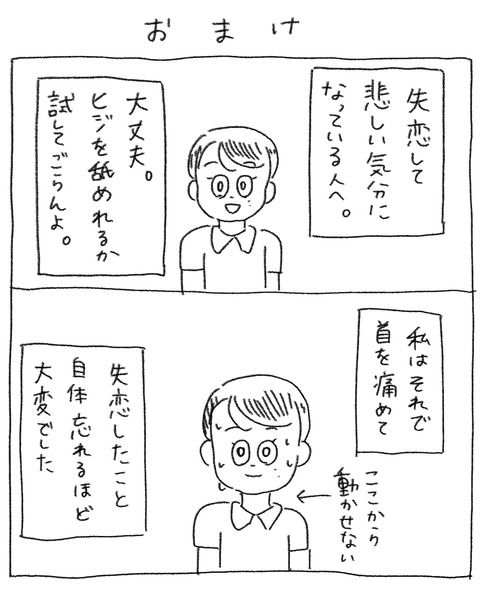 おまけ
失恋して
悲しい気分に
なっている人へ。
大丈夫。
ヒジを舐めれるか
試してごらんよ。
私はそれで
首を痛めて
ここから
動かせない
失恋したこと
自体忘れるほど
大変でした